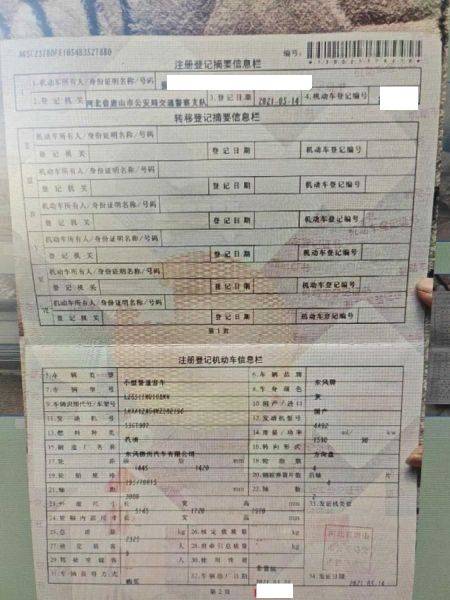 编号:
注册登记摘要信息栏
I 1.机动车所有人/身份证明名称/号码
2.登记机关 河北省唐山市公安局交通警察支队 3.登记日期 2021-05-14 4.机动车登记编号
转移登记摘要信息栏
II 机动车所有人/身份证明名称/号码
登记机关 登记日期 机动车登记编号
III 机动车所有人/身份证明名称/号码
登记机关 登记日期 机动车登记编号
IV 机动车所有人/身份证明名称/号码
登记机关 登记日期 机动车登记编号
V 机动车所有人/身份证明名称/号码
登记机关 登记日期 机动车登记编号
VI 机动车所有人/身份证明名称/号码
登记机关 登记日期 机动车登记编号
VII 机动车所有人/身份证明名称/号码
登记机关 登记日期 机动车登记编号
第1页
注册登记机动车信息栏
5.车辆类型 小型普通客车 6.车辆品牌 东风牌
7.车辆型号 8.车身颜色 灰
9.车辆识别代号/车架号 10.国产/进口 国产
11.发动机号 12.发动机型号 4A92
13.燃料种类 汽油 14.排量/功率 1590 ml/ 90 kw
15.制造厂名称 东风柳州汽车有限公司 16.转向形式 方向盘
17.轮距 前 1445 后 1420 mm 18.轮胎数 4
19.轮胎规格 195/70R15 20.钢板弹簧片数 后轴 片
21.轴距 mm 22.轴数 2
23.外廓尺寸 长 5145 宽 1720 高 mm 33.发证机关章
24.货厢内部尺寸 长 宽 高 mm
25.总质量 2325 kg 26.核定载质量 kg
27.核定载客 人 28.准牵引总质量 kg
29.驾驶室载客 人 30.使用性质 非营运
31.车辆获得方式 购买 32.车辆出厂日期 34.发证日期 2021-05-14
第2页